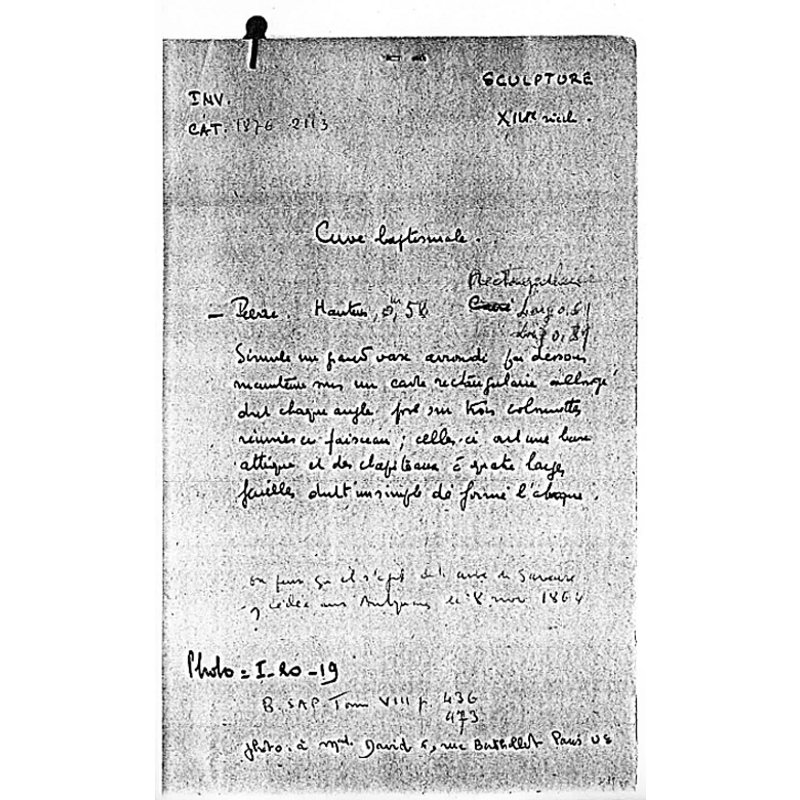 INV.
SCULPTURE
CAT. 1876 2113
XIIe siècle.
Cuve baptismale.
Rectangulaire
— Pierre. Hauteur, 0,m 58 Carré Larg 0.61
Long 0,89
Simule un grand vase arrondi par dessous,
maintenu sur un cadre rectangulaire allongé
dont chaque angle pose sur trois colonnettes
réunies en faisceau ; celles-ci ont une base
attique et des chapiteaux à quatre larges
feuilles dont un simple dé forme l'abaque.
on pense qu'il s'agit de la cuve de
cédée aux Antiquaires le 8 nov 1864
Photo = I-20-19
B. SAP. Tome VIII p. 436
473
photo. à Melle David 6, rue Paris Ve